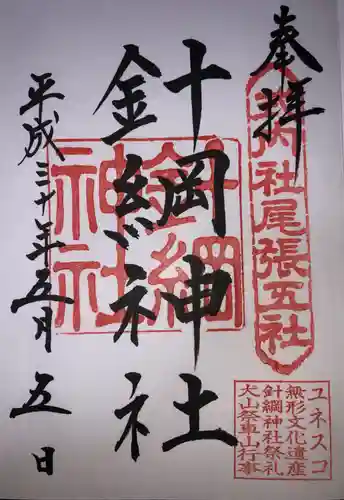 奉拝
内社尾張五社
ユネスコ
無形文化遺産
針綱神社祭礼
犬山祭車山行事
針綱神社
針綱
神社
平成三十年五月五日